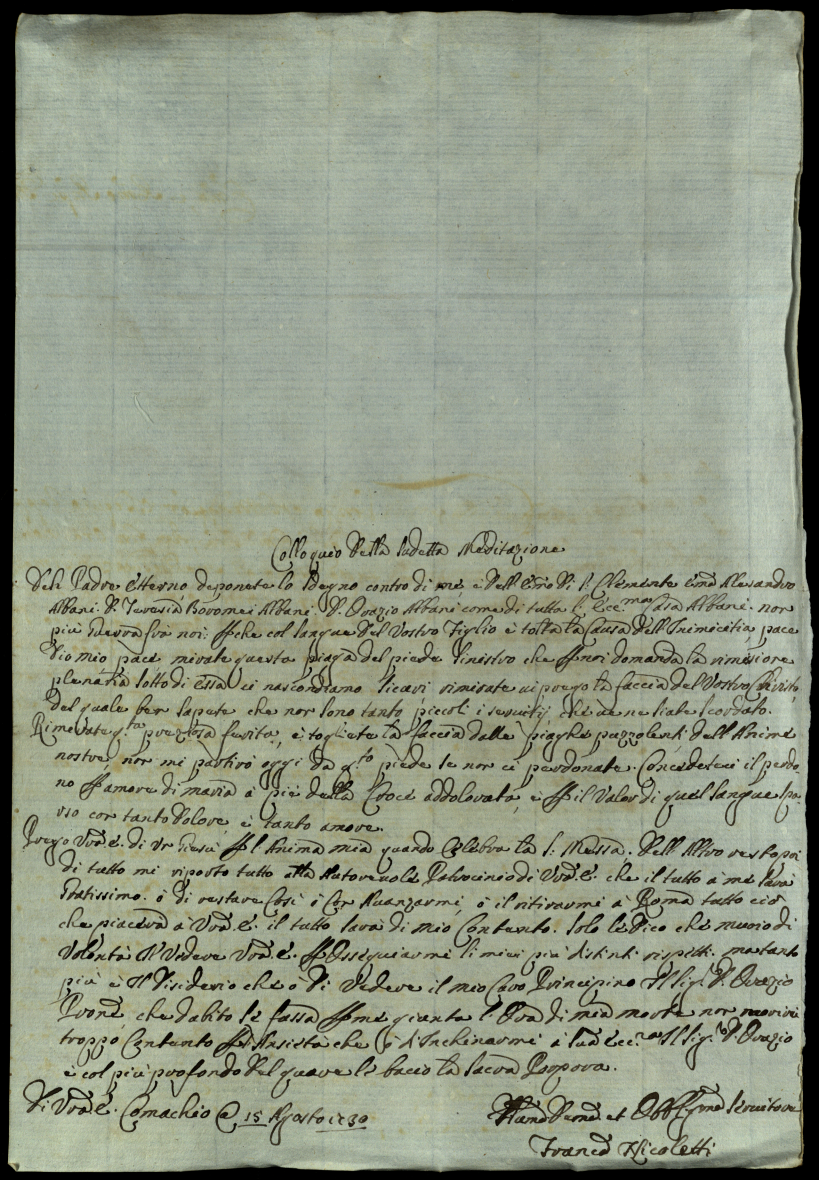 Colloquio della sudetta Meditazione
Deh Padre Etterno deponete lo sdegno contro di me, e dell' di S. Clemente Alesandro
Albani. D. Teresia Boromei Albani. D. Orazio Albani come di tutta l' Ecc.ma Casa Albani. non
più guerra frà noi. che col sangue del Vostro Figlio è tolta la Causa dell' Inimicitia, pace
Dio mio pace mirate questa piaga del piede sinistro che noi domanda la rimisione
plenaria sotto di essa ci nascondiamo sicuri rimirate vi prego la faccia del Vostro Christo
del quale ben sapete che non sono tanto piccoli i servitij, che ve ne siate scordato.
Rimirate q.ta preziosa ferita, e togliete la faccia dalle piaghe puzzolenti dell' Anime
nostre, non mi partirò oggi da q.to piede se non ci perdonate. Concedeteci il perdo
no amore di Maria a piè della Croce addolorata, e il Valor di quel sangue spa-
rso con tanto dolore, e tanto amore.
Prego V.ra E. di Giesù l' Anima mia quando Celebra la S. Messa. Dell' Altro resto poi
di tutto mi riporto tutto alla Autorevole Patrocinio di V.ra E. che il tutto a me sarà
Gratissimo. ò di restare Così ò Con Avanzarmi, ò il ritirarmi à Roma tutto ciò
che piacerà à V.ra E. il tutto sarà di mio Contento. Solo le dico che muoio di
Volontà di Vedere V.ra E. Ossequiarmi li miei più distinti rispetti. ma tanto
più è il Disiderio che ò di Vedere il mio Caro Principino Il Sig.r D. Orazio
che dubito se fassa me gionta l' Ora di mia morte non morirei
troppo Contento Ansietà che ò d' Inchinarmi à Sua Ecc.za Il Sig.r D. Orazio
e col più profondo del quore le bacio la Sacra Porpora.
Di V.ra E. Comachio 15 Agosto 1730
et Servitore
Franc.o Nicoletti